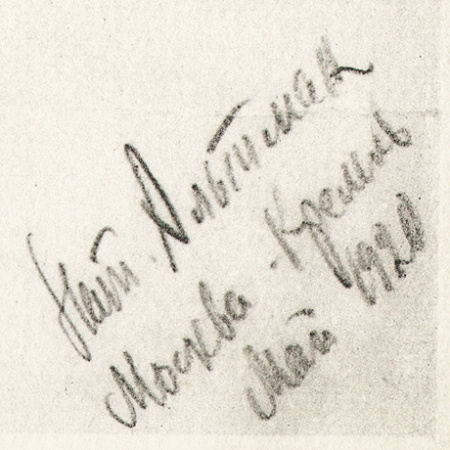 Нат. Альтман
Москва. Кремль
Май 1920